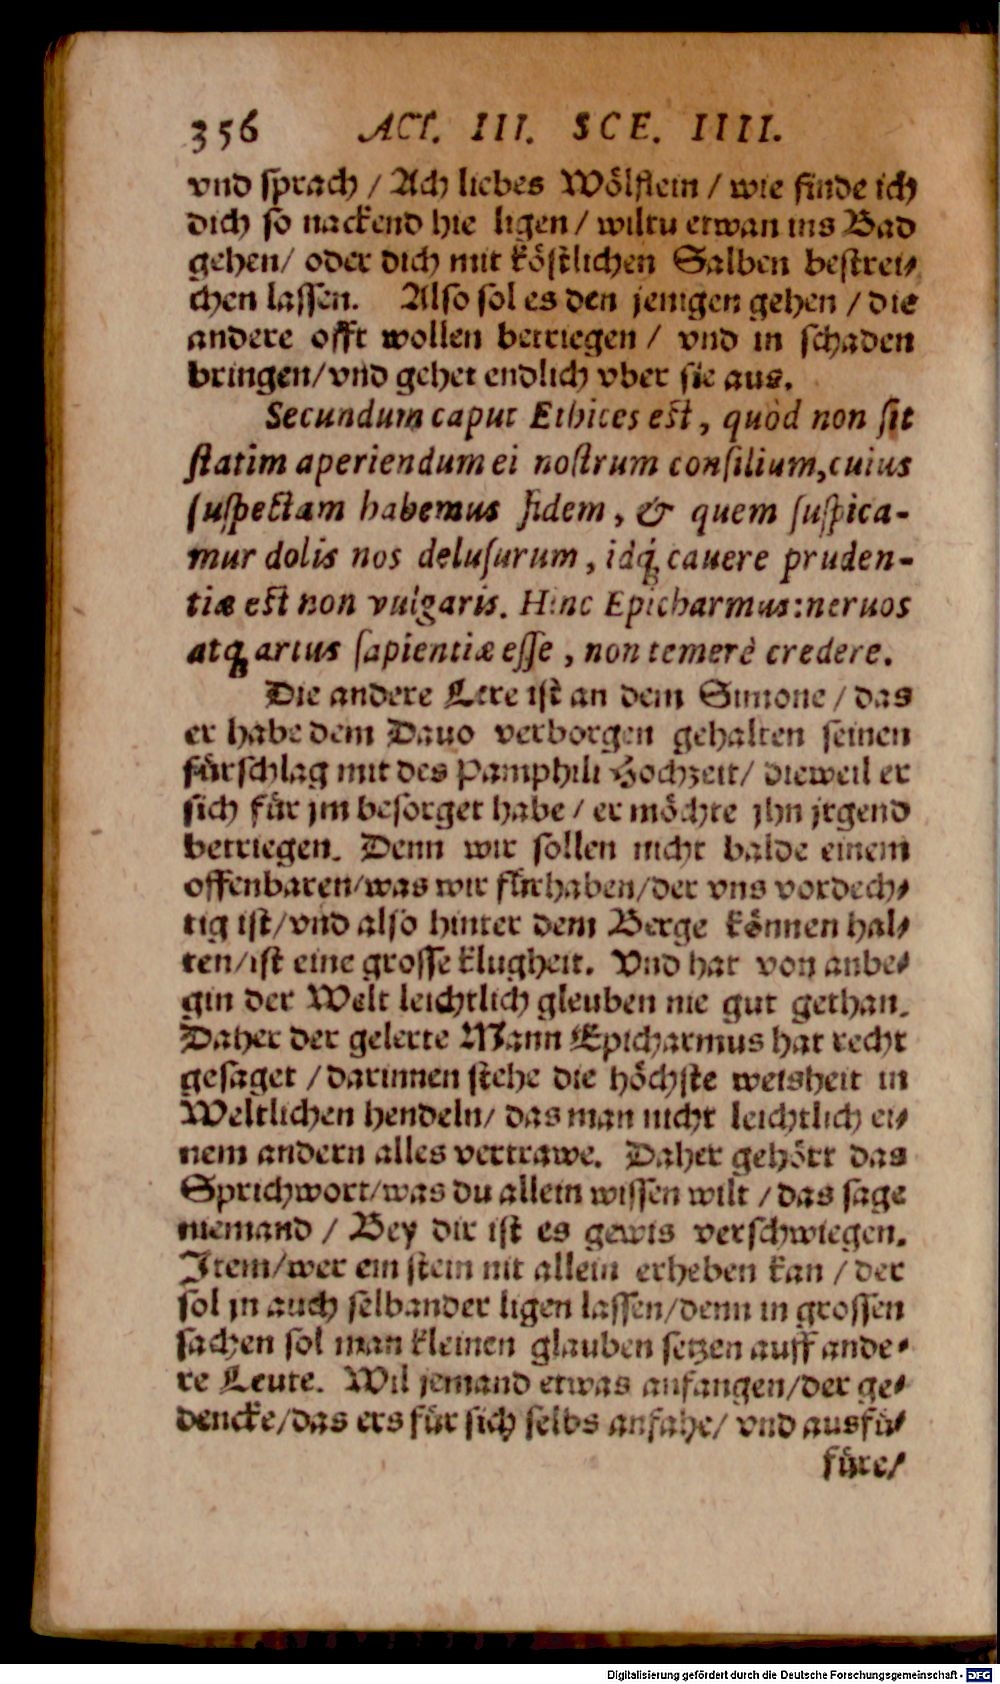 356 ACT. III. SCE. IIII.
vnd sprach / Ach liebes Wölflein / wie finde ich
dich so nackend hie ligen / wiltu etwan ins Bad
gehen / oder dich mit köstlichen Salben bestrei⸗
chen lassen. Also sol es den jenigen gehen / die
andere offt wollen betriegen / vnd in schaden
bringen / vnd gehet endlich vber sie aus.
Secundum caput Ethices est, quòd non sit
statim aperiendum ei nostrum consilium, cuius
suspectam habemus fidem, & quem suspica-
mur dolis nos delusurum, idq́; cauere pruden-
tiæ est non vulgaris. Hinc Epicharmus: neruos
atq; artus sapientiæ esse, non temerè credere.
Die andere Lere ist an dem Simone / das
er habe dem Dauo verborgen gehalten seinen
fürschlag mit des Pamphili Hochzeit / dieweil er
sich für jm besorget habe / er möchte jhn jrgend
betriegen. Denn wir sollen nicht balde einem
offenbaren / was wir fürhaben / der vns vordech⸗
tig ist / vnd also hinter dem Berge können hal⸗
ten / ist eine grosse klugheit. Vnd hat von anbe⸗
gin der Welt leichtlich gleuben nie gut gethan.
Daher der gelerte Mann Epicharmus hat recht
gesaget / darinnen stehe die höchste weisheit in
Weltlichen hendeln / das man nicht leichtlich ei⸗
nem andern alles vertrawe. Daher gehört das
Sprichwort / was du allein wissen wilt / das sage
niemand / Bey dir ist es gewis verschwiegen.
Item / wer ein stein nit allein erheben kan / der
sol jn auch selbander ligen lassen / denn in grossen
sachen sol man kleinen glauben setzen auff ande⸗
re Leute. Wil jemand etwas anfangen / der ge⸗
dencke / das ers für sich selbs anfahe / vnd ausfü⸗
füre /
Digitalisierung gefördert durch die Deutsche Forschungsgemeinschaft - DFG